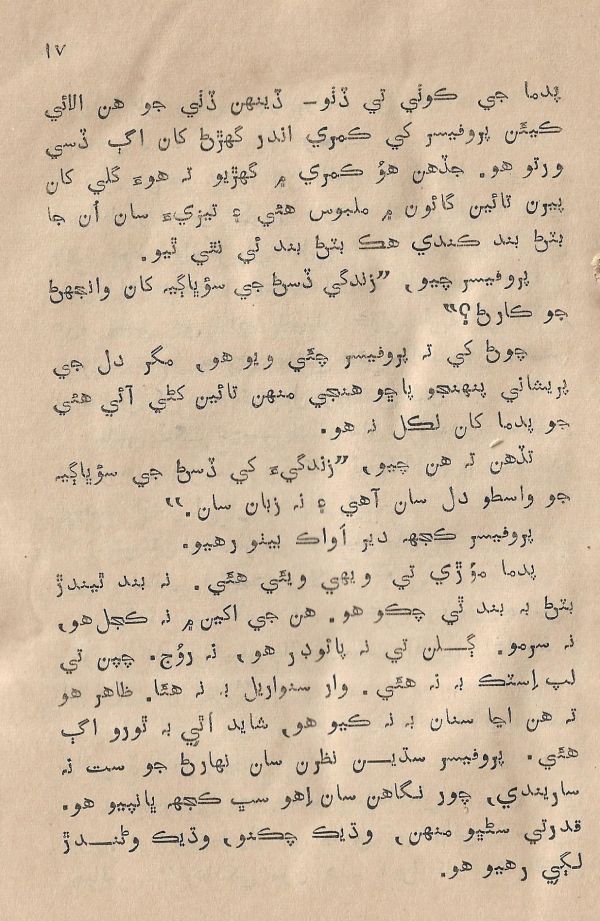 ۱۷
پدما جي ڪوٺي تي ڏٺو– ڏينهن ڏٺي جو هن الائي
ڪيئن پروفيسر کي ڪمري اندر گهڙڻ کان اڳ ڏسي
ورتو هو. جڏهن هوُ ڪمري ۾ گهڙيو ته هوءَ گلي کان
پيرن تائين گائون ۾ ملبوس هئي ۽ تيزيءَ سان اُن جا
بٽڻ بند ڪندي هڪ بٽڻ بند ئي نٿي ٿيو.
پروفيسر چيو, ”زندگي ڏسڻ جي سؤڀاڳيہ کان وانجهڻ
جو ڪارڻ؟”
چوڻ کي ته پروفيسر چئي ويو هو, مگر دل جي
پريشاني پنهنجو پاڇو هنجي منهن تائين کڻي آئي هئي
جو پدما کان لڪل نه هو.
تڏهن ته هن چيو, ”زندگيءَ کي ڏسڻ جي سؤڀاڳيہ
جو واسطو دل سان آهي ۽ نه زبان سان.“
پروفيسر ڪجهہ دير اَواڪ بيٺو رهيو.
پدما موُڙي تي ويهي ويئي هئي. نه بند ٿيندڙ
بٽڻ به بند ٿي چڪو هو. هن جي اکين ۾ نه ڪجل هو,
نه سرمو. ڳــلن تي نه پائوڊر هو, نه روُج. چپن تي
لپ اِسٽڪ به نه هئي. وار سنواريل به نه هئا. ظاهر هو
ته هن اڃا سنان به نه ڪيو هو, شايد اُٿي به ٿورو اڳ
هئي. پروفيسر سڌيــن نظرن سان نهارڻ جو ست نه
ساريندي, چور نگاهن سان اِهو سڀ ڪجهہ ڀانپيو هو.
قدرتي سڻيو منهن, وڌيڪ چڪنو, وڌيڪ وڻنــدڙ
لڳي رهيو هو.